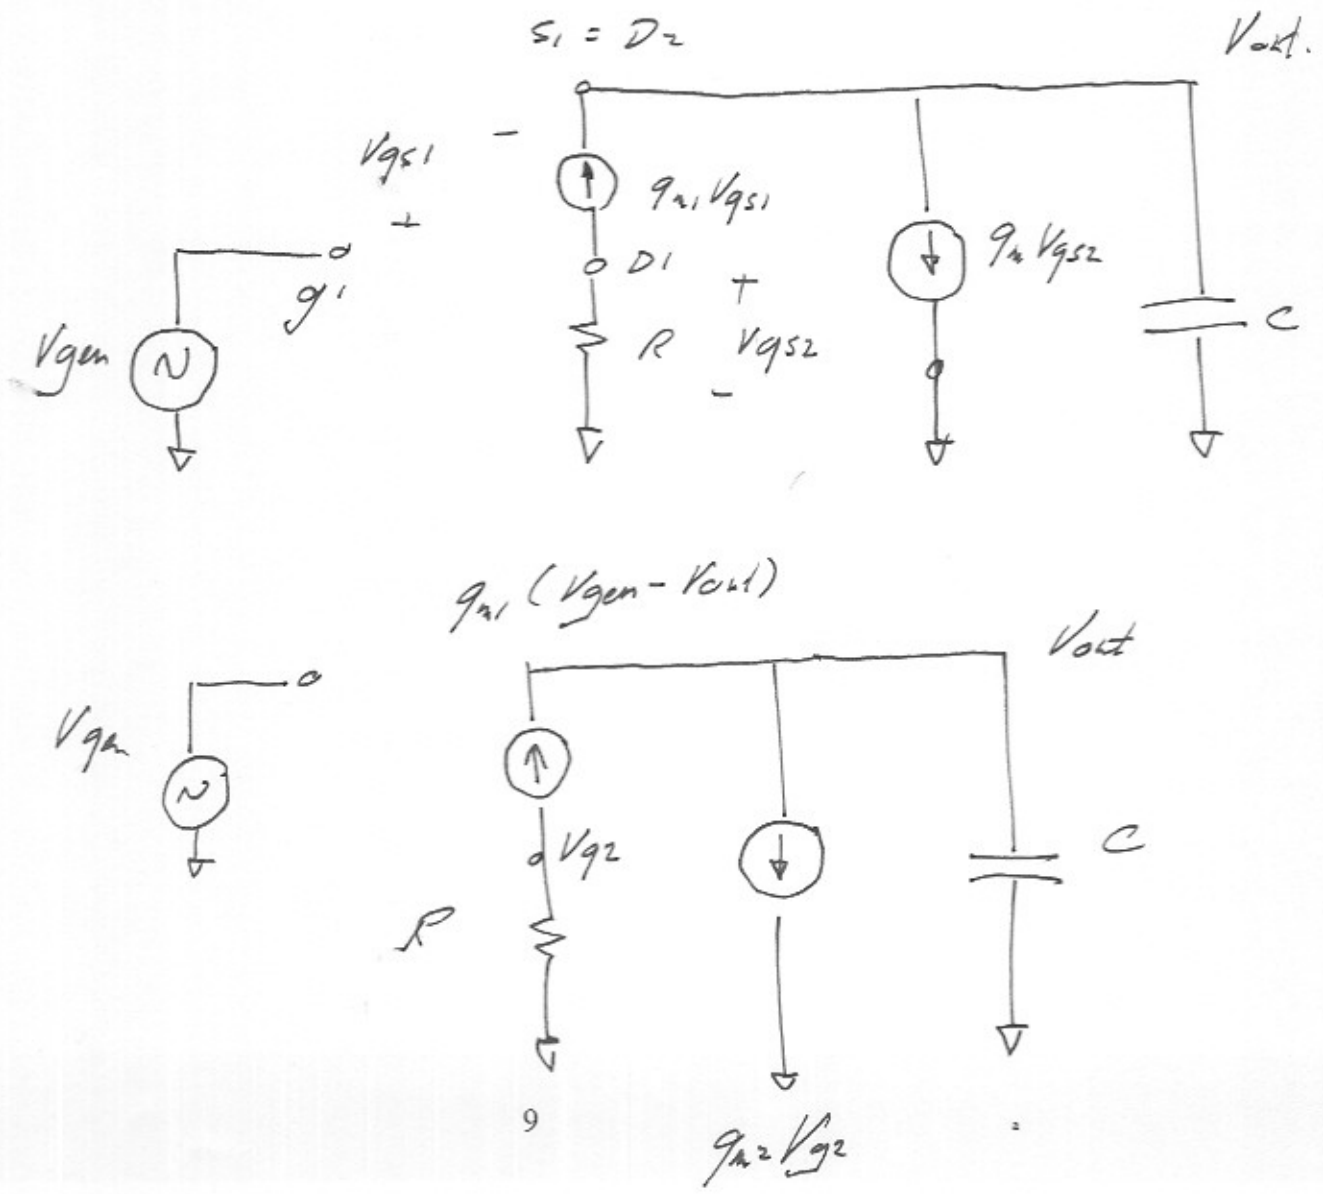 S1 = D2
Vout.
Vgs1
-
+
gm1 Vgs1
D1
g1
Vgen
R
+
Vgs2
-
gm Vgs2
C
gm1 (Vgen - Vout)
Vout
Vgen
Vg2
R
C
9
gm2 Vg2